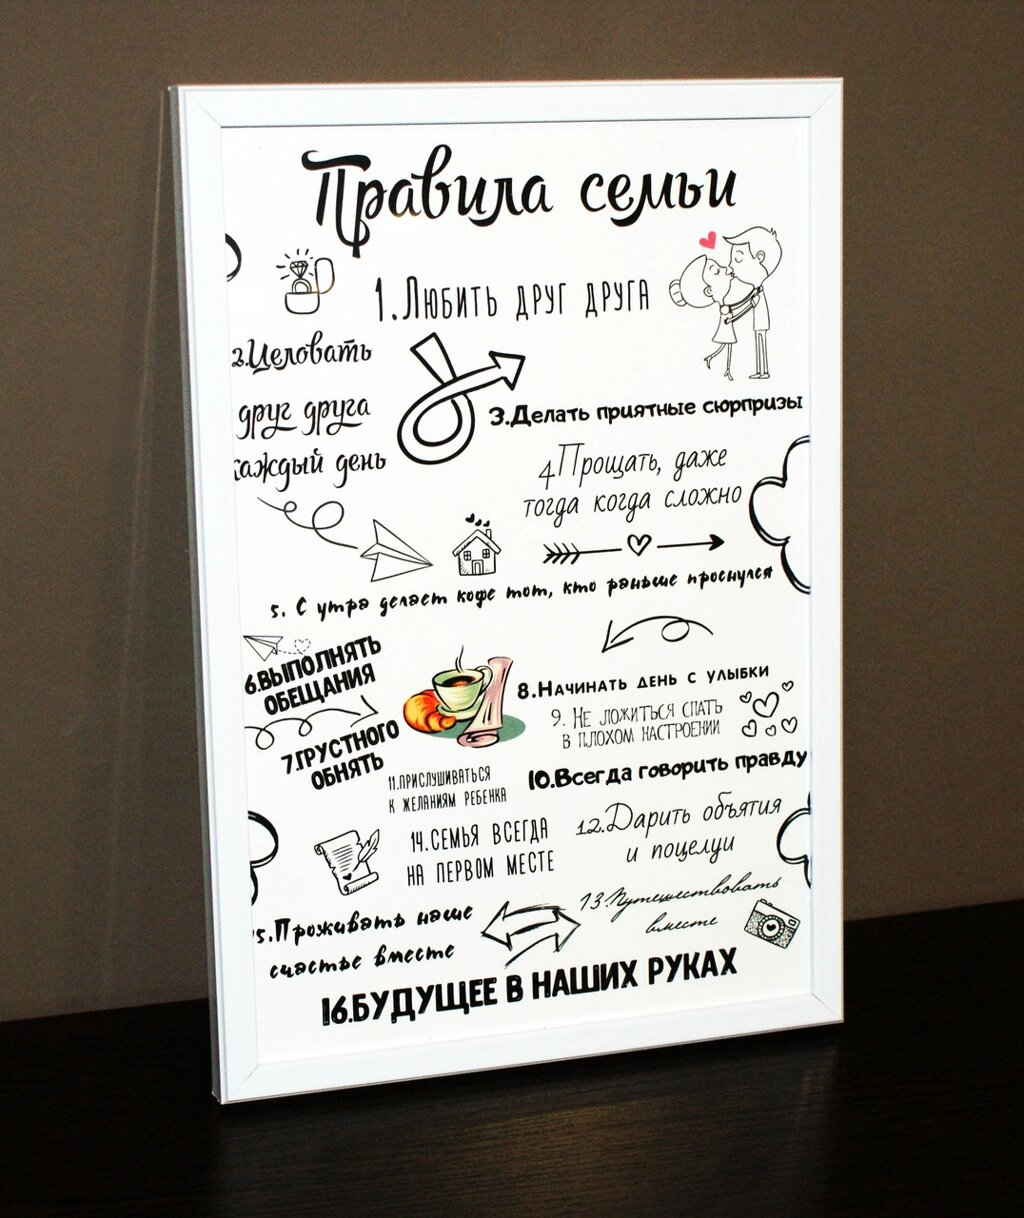 Правила семьи
1.Любить друг друга
2.Целовать
друг друга
каждый день
3.Делать приятные сюрпризы
4.Прощать, даже
тогда когда сложно
5. С утра делает кофе тот, кто раньше проснулся
6.ВЫПОЛНЯТЬ
ОБЕЩАНИЯ
7.ГРУСТНОГО
ОБНЯТЬ
8.Начинать день с улыбки
9. Не ложиться спать
в плохом настроении
10.Всегда говорить правду
11.Прислушиваться
к желаниям ребенка
12.Дарить объятия
и поцелуи
13.Путешествовать
вместе
14.Семья всегда
на первом месте
5.Проживать наше
счастье вместе
16.БУДУЩЕЕ В НАШИХ РУКАХ